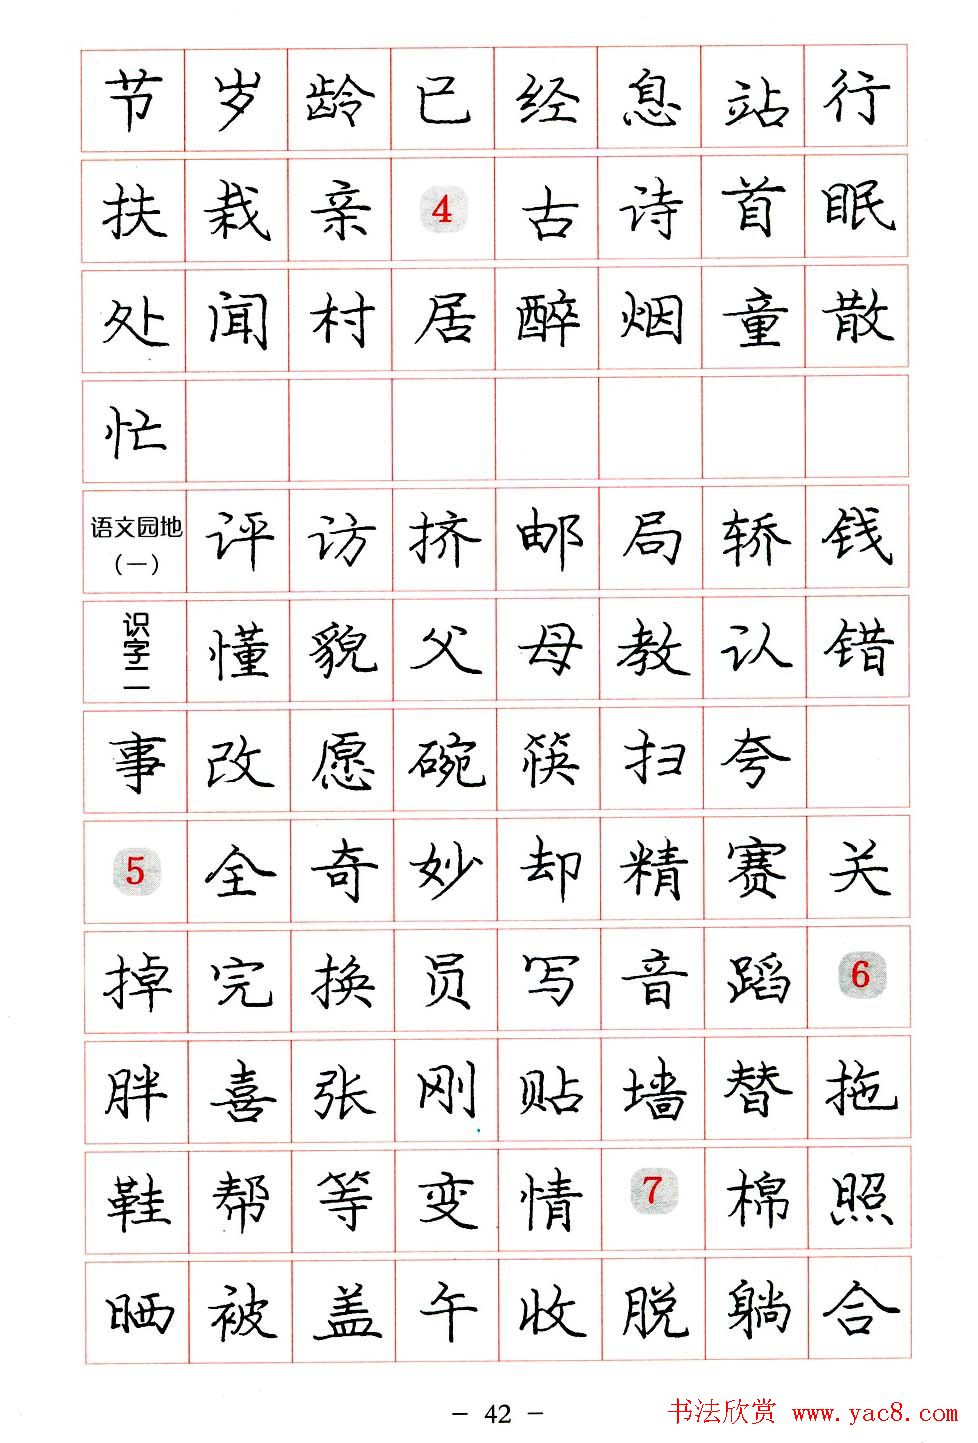 节岁龄已经息站行
扶栽亲4古诗首眠
处闻村居醉烟童散
忙
语文园地(一)评访挤邮局轿钱
识字二懂貌父母教认错
事改愿碗筷扫夸
5全奇妙却精赛关
掉完换员写音蹈6
胖喜张刚贴墙替拖
鞋帮等变情7棉照
晒被盖午收脱躺合
- 42 -
书法欣赏 www.yac8.com